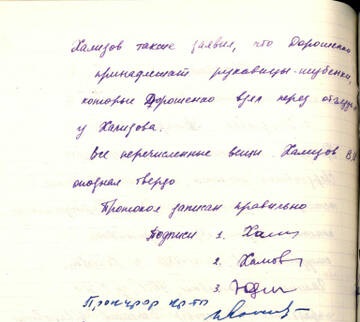 Хализов также заявил, что Дорошенко
принадлежат рукавицы-шубенки,
которые Дорошенко взял перед
у Хализова.
Все перечисленные вещи Хализов В.
опознал твердо
Протокол записан правильно
Подписи 1. Хализ
2. Хамов
3. Юдин
Прокурор